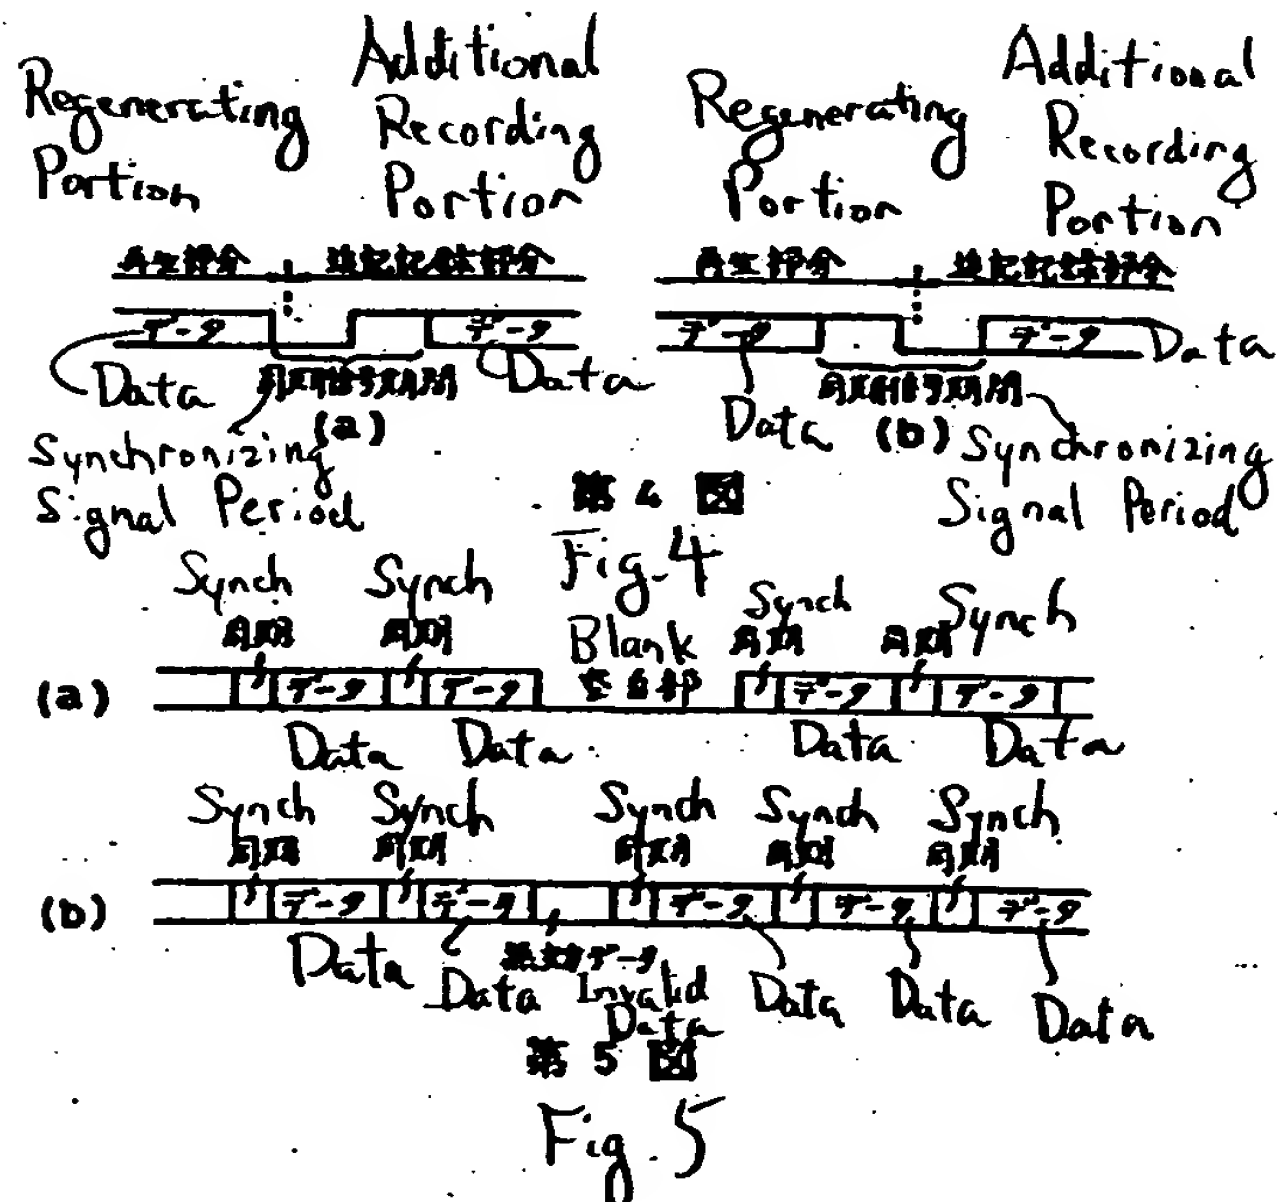 Regenerating
Portion
Additional
Recording
Portion
Regenerating
Portion
Additional
Recording
Portion
再生部分
追記記録部分
再生部分
追記記録部分
データ
データ
データ
データ
Data
Data
Data
Data
同期信号期間
同期信号期間
(a)
(b)
Synchronizing
Signal Period
Synchronizing
Signal Period
第 4 図
Fig. 4
Synch
Synch
Blank
Synch
Synch
同期
同期
同期
同期
(a)
データ
データ
空白部
データ
データ
Data
Data
Data
Data
Synch
Synch
Synch
Synch
Synch
同期
同期
同期
同期
同期
(b)
データ
データ
データ
データ
データ
Data
Data
無効データ
Invalid
Data
Data
Data
Data
第 5 図
Fig. 5